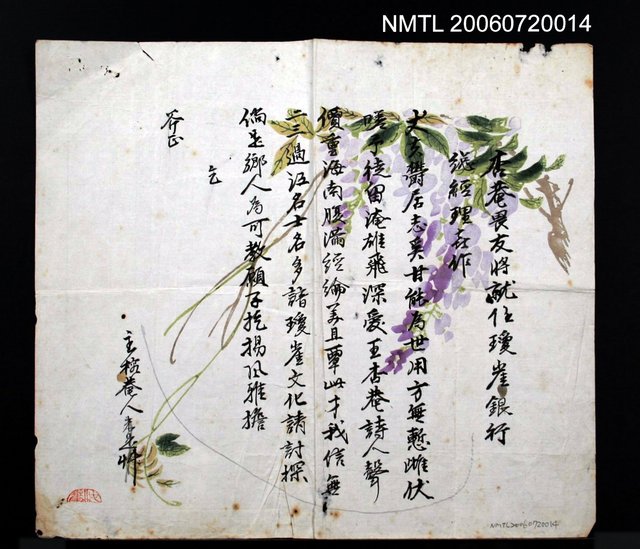 NMTL 20060720014
杏菴畏友將就任瓊崖銀行
總經理喜作
丈夫鬱居志奚甘能為世用方無慙雌伏
嗟予徒田淹雄飛深愛王杏菴詩人聲
價重海南腹滿經綸美且覃此才我信無
二三過江名士名多諳瓊崖文化請討探
倘是鄉人為可教願子抗揚風雅擔
乞
斧正
菴人
NMTL20060720014